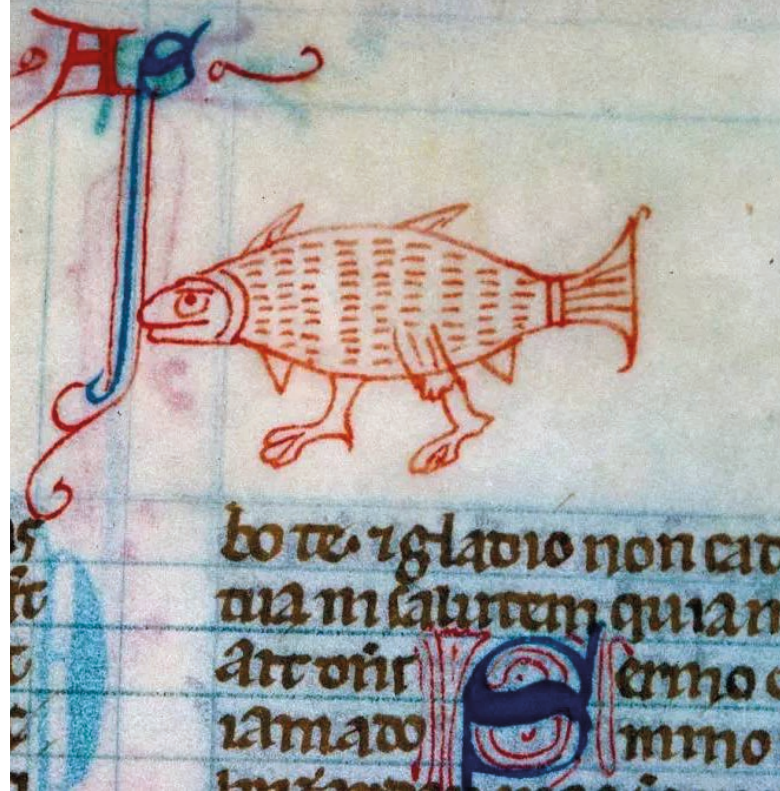 AS
bo te· ⁊ gladio non cad
tua in salutem quia
ait dn̄s Sermo
iamado mino